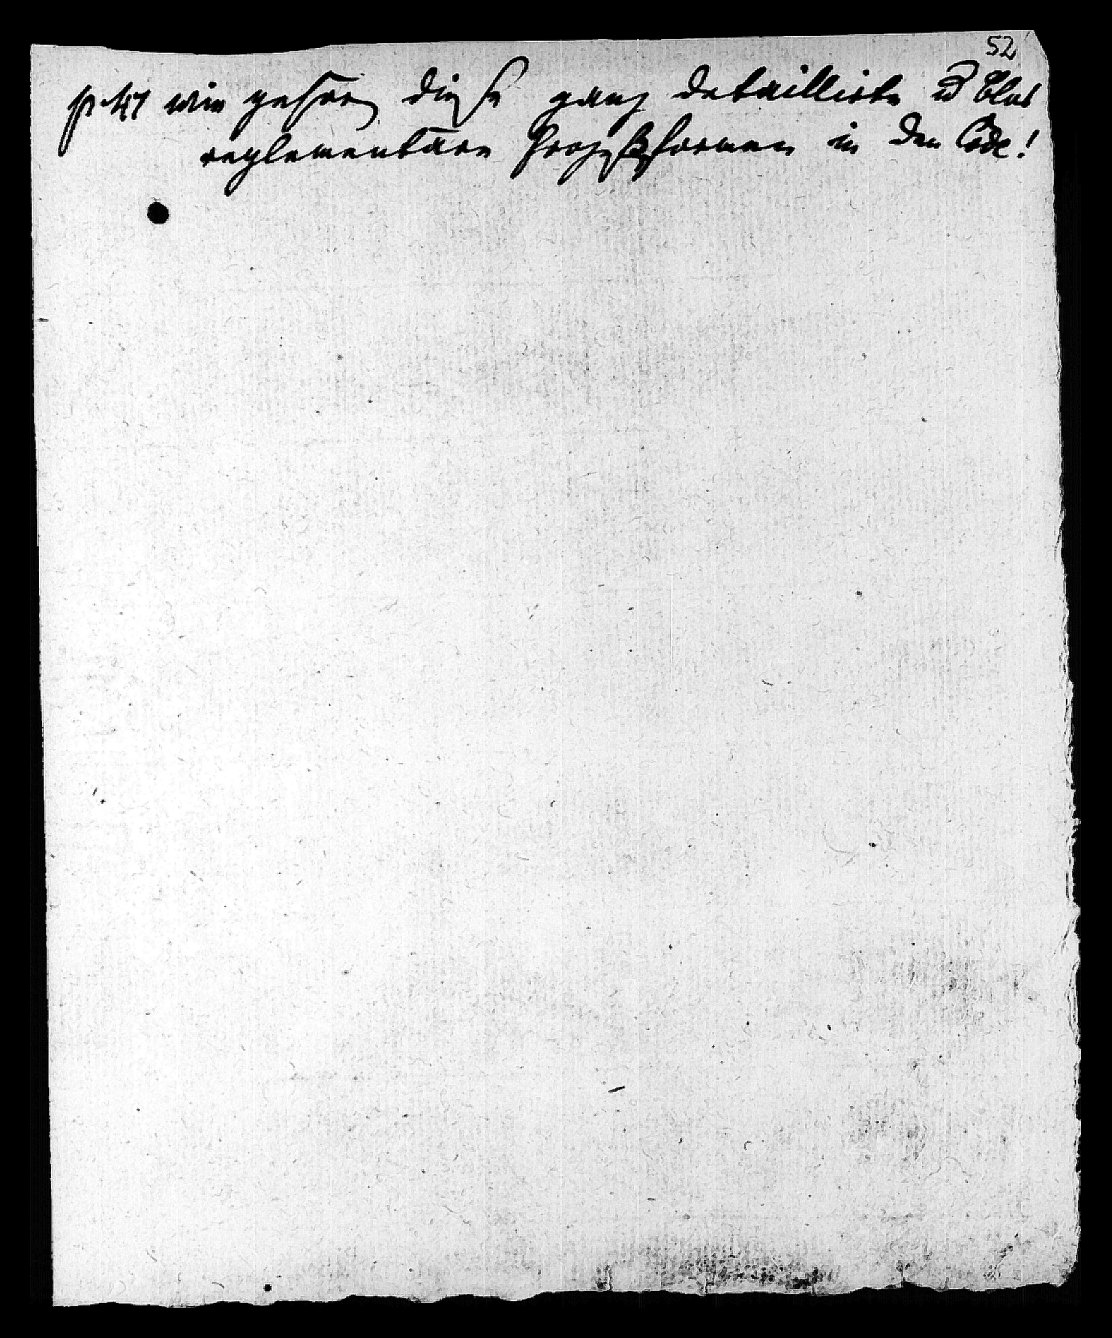 52
p. 47 wie gehören diese ganz detaillirte u blos
reglementäre Prozeßformen in den Code!